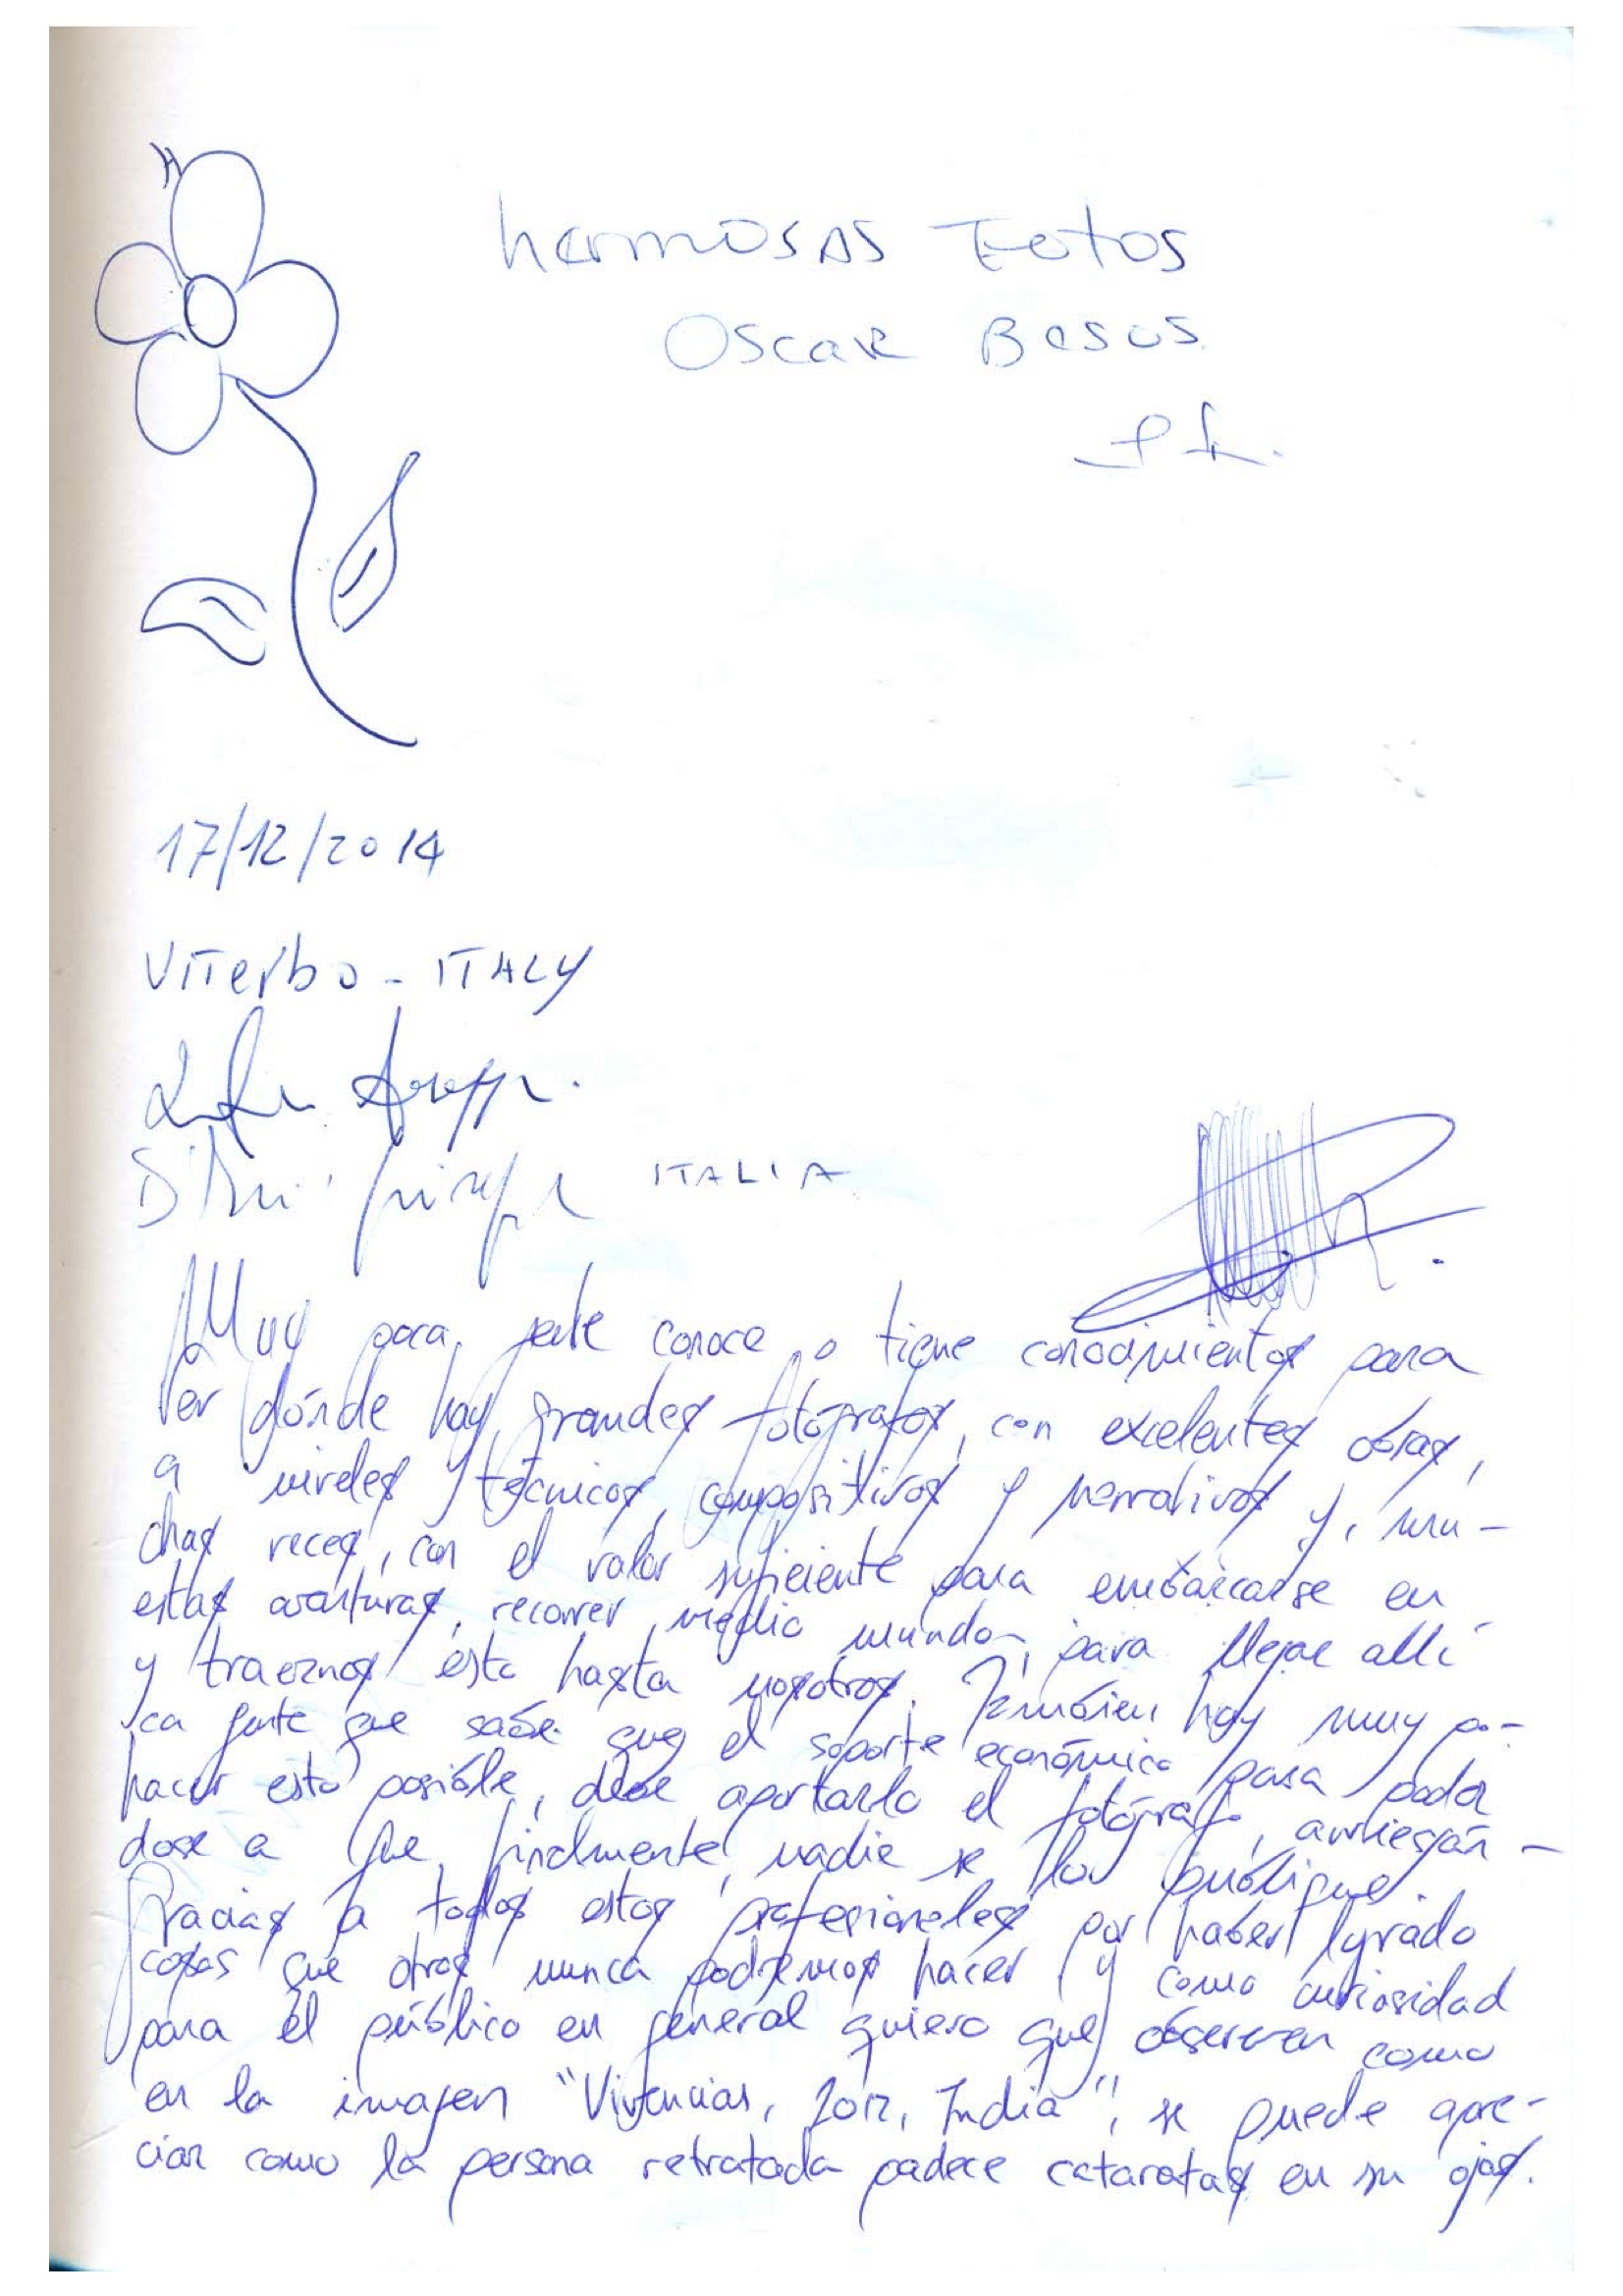 hermosas Fotos
Oscar
17/12/2014
VITerbo - ITALY
ITALIA
Muy poca gente conoce o tiene conocimientos para
ver dónde hay grandes fotógrafos, con excelentes obras,
a niveles técnicos, compositivos y narrativos y, mu-
chas veces, con el valor suficiente para embarcarse en
estas aventuras, recorrer medio mundo, para llegar allí
y traernos esto hasta nosotros. También hay muy po-
ca gente que sabe que el soporte económico para poder
hacer esto posible, debe aportarlo el fotógrafo, arriesgán-
dose a que, finalmente, nadie se los publique.
Gracias a todos estos profesionales por haber logrado
cosas que otros nunca podremos hacer y como curiosidad
para el público en general quiero que observen como
en la imagen "Vivencias, 2012, India", se puede apre-
ciar como la persona retratada padece cataratas en su ojos.